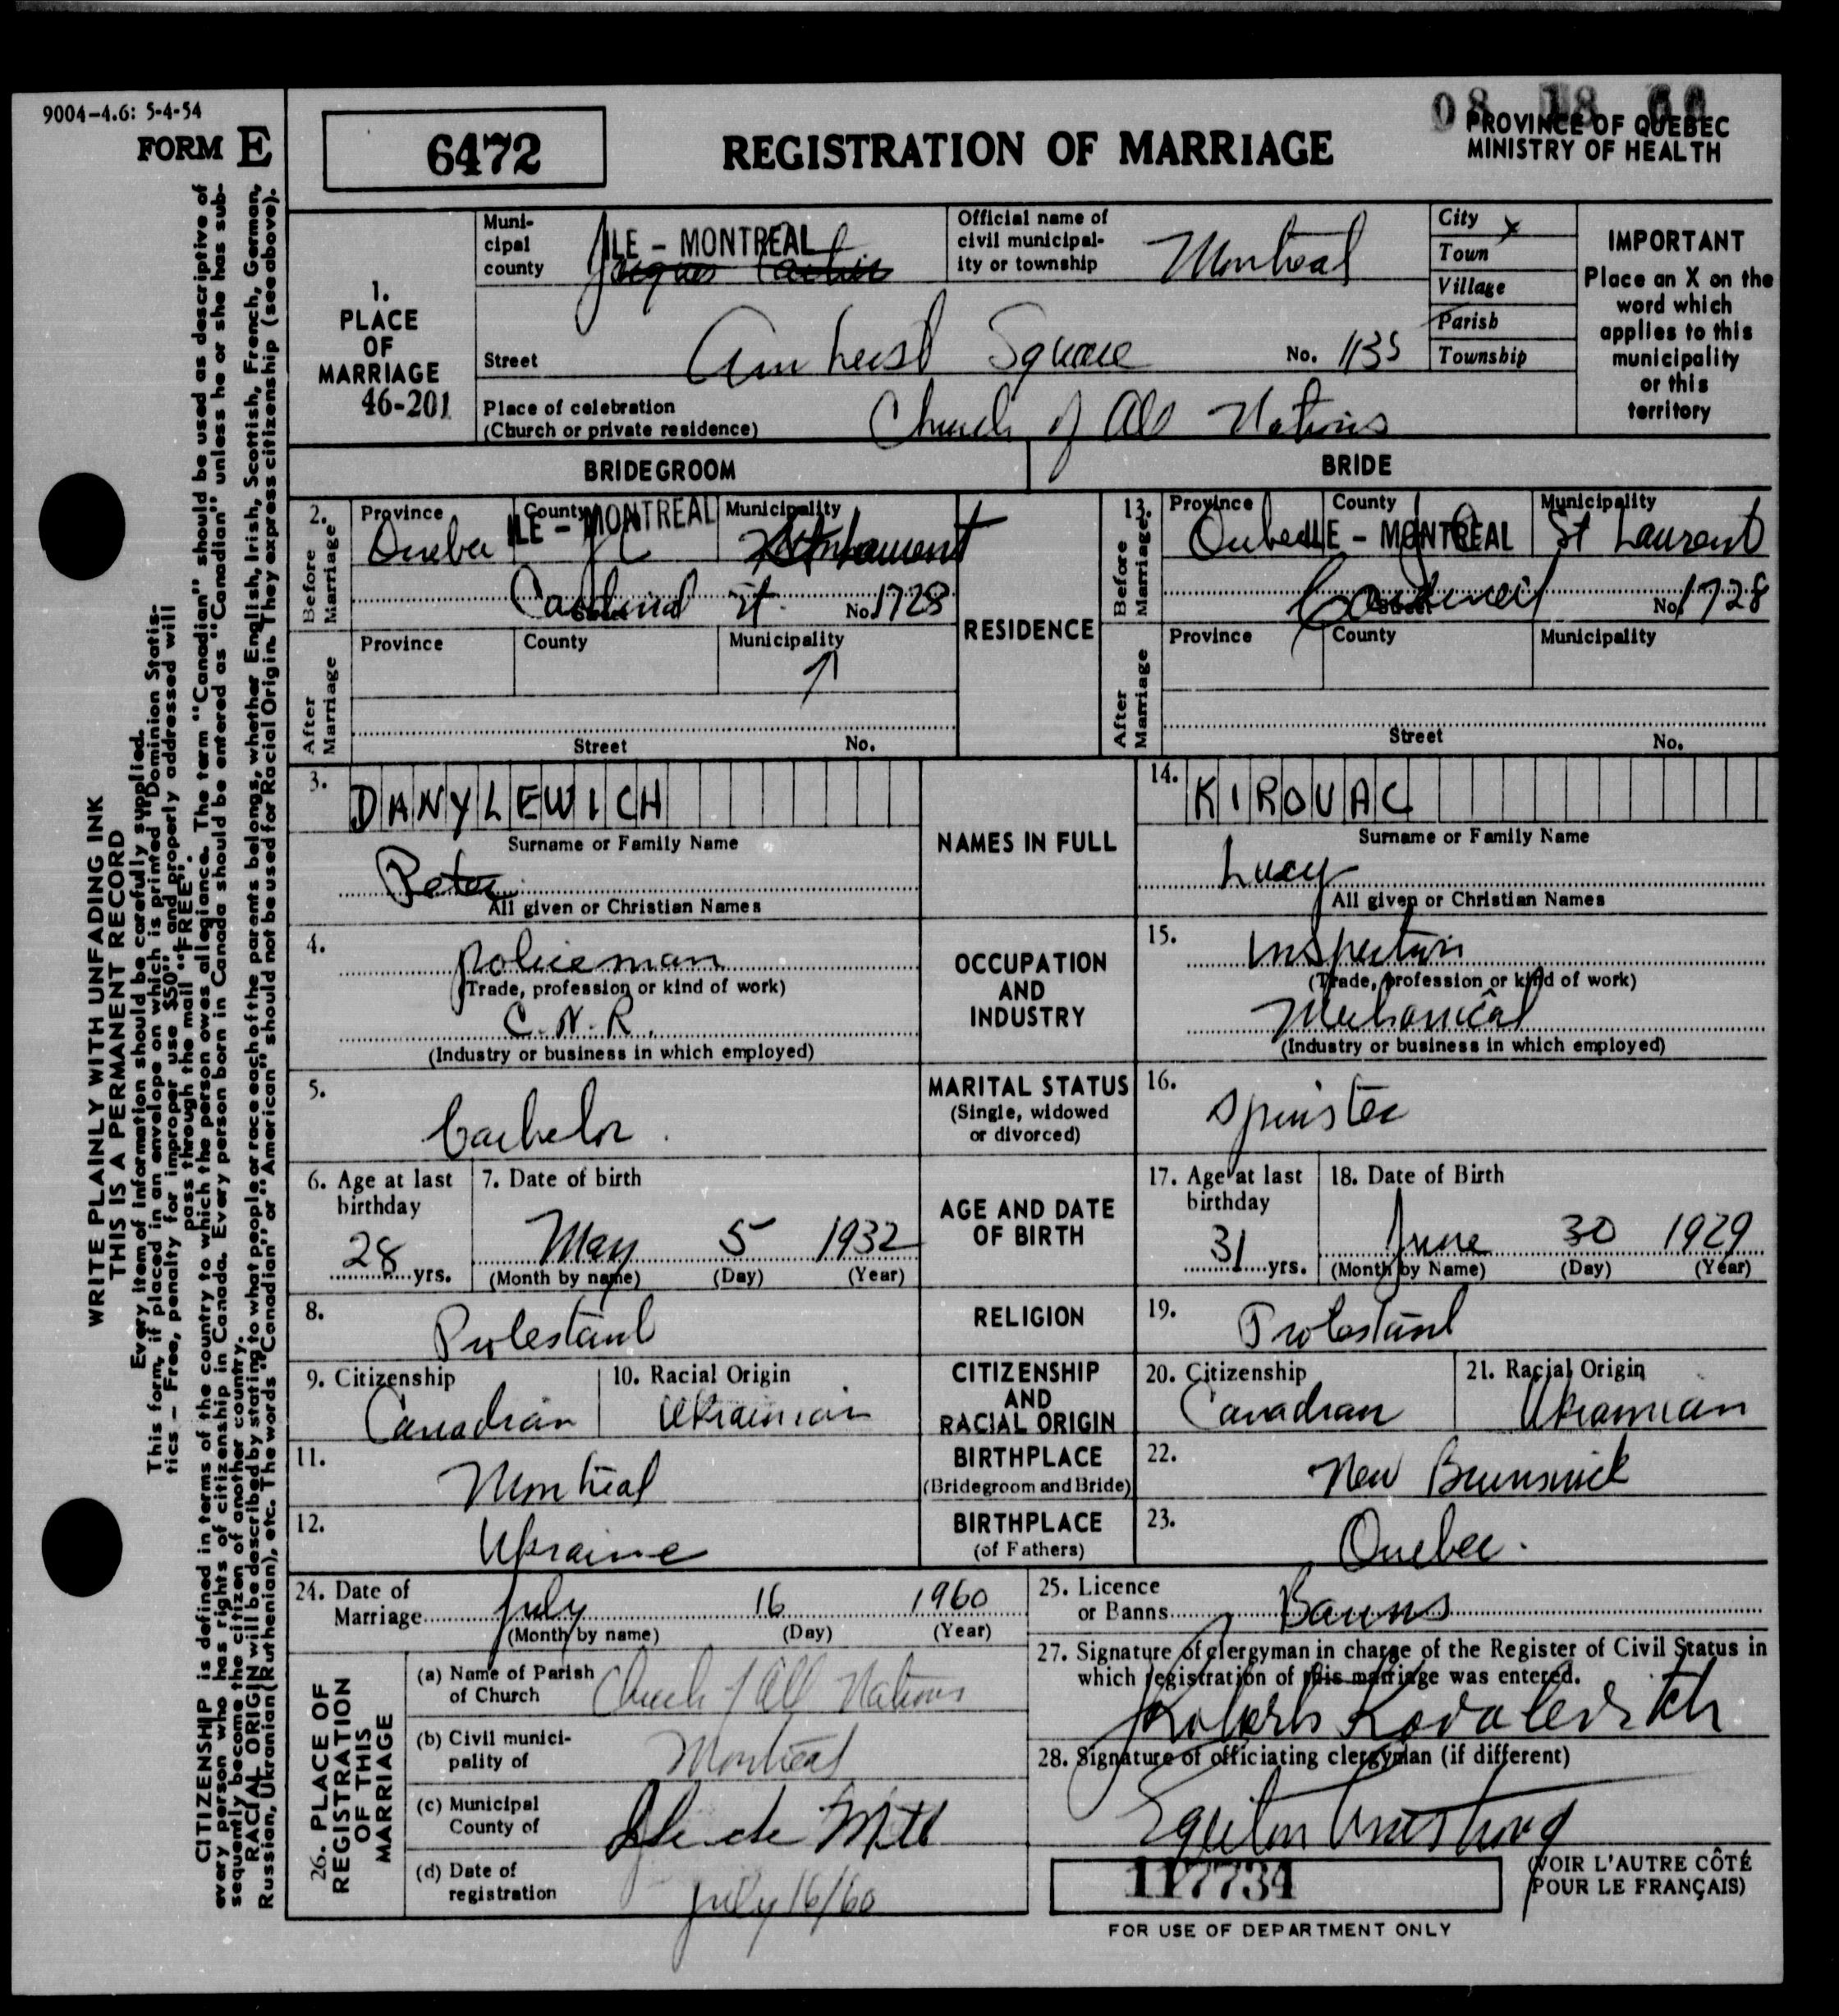 9004-4.6: 5-4-54
FORM E
6472
REGISTRATION OF MARRIAGE
08 18 60
PROVINCE OF QUEBEC
MINISTRY OF HEALTH
WRITE PLAINLY WITH UNFADING INK
THIS IS A PERMANENT RECORD
Every item of information should be carefully supplied.
This form, if placed in an envelope on which is printed "Dominion Statis-
tics – Free, penalty for improper use $50" and properly addressed will
pass through the mail "FREE".
CITIZENSHIP is defined in terms of the country to which the person owes allegiance. The term "Canadian" should be used as descriptive of
every person who has rights of citizenship in Canada. Every person born in Canada should be entered as "Canadian" unless he or she has sub-
sequently become the citizen of another country.
RACIAL ORIGIN will be described by stating to what people or race each of the parents belongs, whether English, Irish, Scottish, French, German,
Russian, Ukranian (Ruthenian), etc. The words "Canadian" or "American" should not be used for Racial Origin. They express citizenship (see above).
1.
PLACE
OF
MARRIAGE
46-201
Muni-
cipal
county
ILE - MONTREAL
Jacques Cartier
Official name of
civil municipal-
ity or township
Montreal
City x
Town
Village
Parish
Township
IMPORTANT
Place an X on the
word which
applies to this
municipality
or this
territory
Street Amherst Square No. 1135
Place of celebration
(Church or private residence)
Church of All Nations
BRIDEGROOM
BRIDE
2.
Before
Marriage
Province County Municipality
Quebec ILE - MONTREAL JC St Laurent
Cardinal St. No. 1728
After
Marriage
Province County Municipality
Street No.
RESIDENCE
13.
Before
Marriage
Province County Municipality
Quebec ILE - MONTREAL St Laurent
Cardinal No. 1728
After
Marriage
Province County Municipality
Street No.
3.
DANYLEWICH
Surname or Family Name
Peter
All given or Christian Names
NAMES IN FULL
14.
KIROUAC
Surname or Family Name
Lucy
All given or Christian Names
4.
Policeman
(Trade, profession or kind of work)
C.N.R.
(Industry or business in which employed)
OCCUPATION
AND
INDUSTRY
15.
Inspector
(Trade, profession or kind of work)
Mechanical
(Industry or business in which employed)
5.
bachelor
MARITAL STATUS
(Single, widowed
or divorced)
16.
spinster
6. Age at last
birthday
28 yrs.
7. Date of birth
May 5 1932
(Month by name) (Day) (Year)
AGE AND DATE
OF BIRTH
17. Age at last
birthday
31 yrs.
18. Date of Birth
June 30 1929
(Month by Name) (Day) (Year)
8.
Protestant
RELIGION
19.
Protestant
9. Citizenship
Canadian
10. Racial Origin
Ukrainian
CITIZENSHIP
AND
RACIAL ORIGIN
20. Citizenship
Canadian
21. Racial Origin
Ukrainian
11.
Montreal
BIRTHPLACE
(Bridegroom and Bride)
22.
New Brunswick
12.
Ukraine
BIRTHPLACE
(of Fathers)
23.
Quebec.
24. Date of
Marriage July 16 1960
(Month by name) (Day) (Year)
25. Licence
or Banns Banns
26. PLACE OF
REGISTRATION
OF THIS
MARRIAGE
(a) Name of Parish
of Church
Church of All Nations
(b) Civil munici-
pality of
Montreal
(c) Municipal
County of
Ile de Mtl
(d) Date of
registration
July 16/60
27. Signature of clergyman in charge of the Register of Civil Status in
which registration of this marriage was entered.
Kovalevitch
28. Signature of officiating clergyman (if different)
Armstrong
117734
FOR USE OF DEPARTMENT ONLY
(VOIR L'AUTRE CÔTÉ
POUR LE FRANÇAIS)